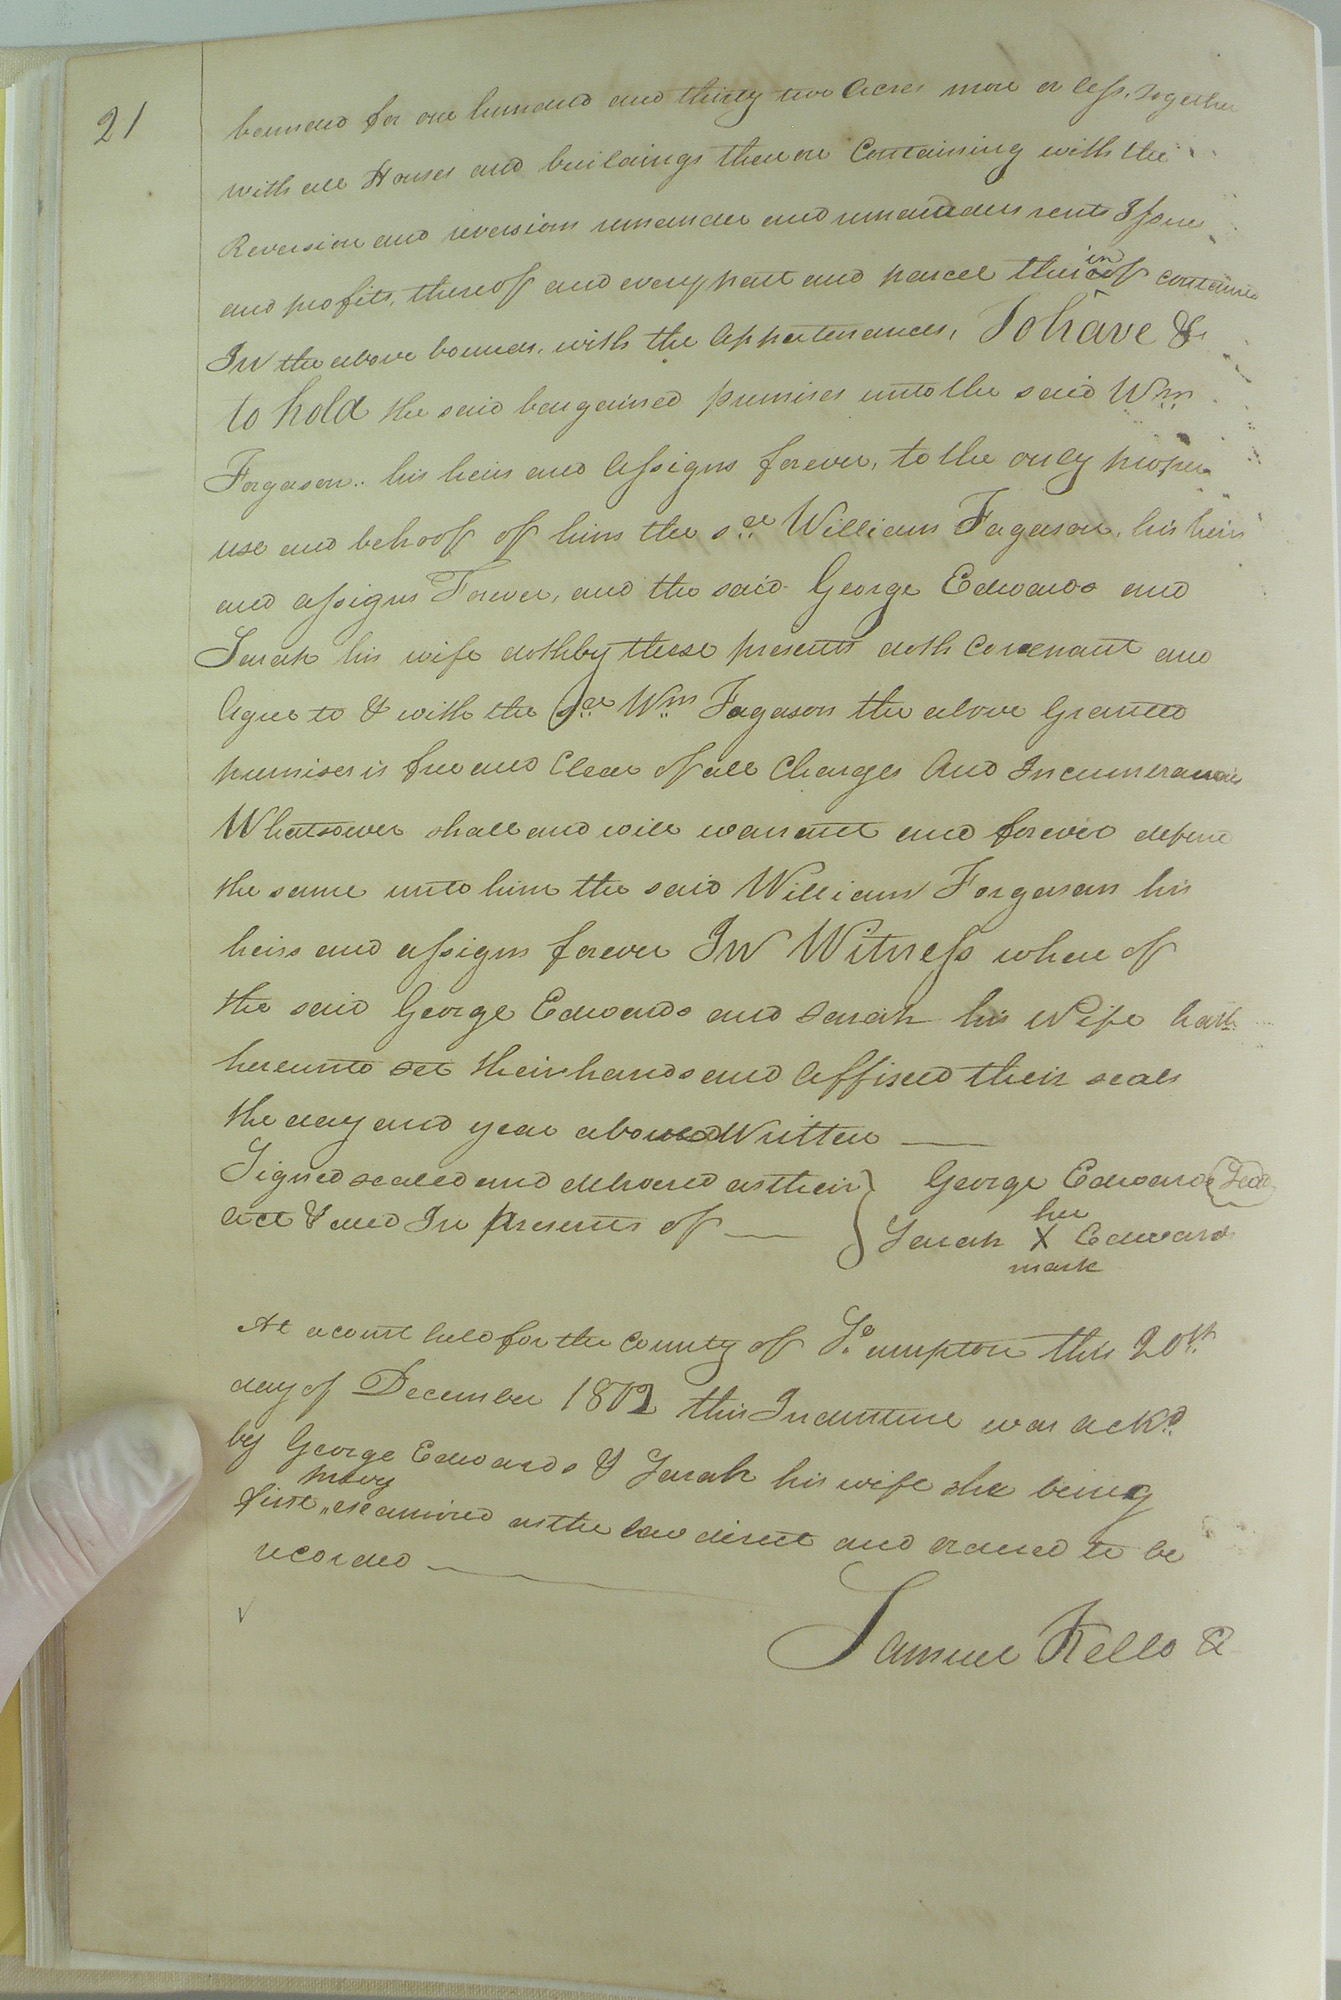 21
bounded for one hundred and thirty two Acres more or less, together
with all Houses and buildings thereon Containing with the
Reversion and reversions remainder and remainders rents Issues
and profits, thereof and every part and parcel thereof in contained
In the above bounds, with the Appertenances, To have &
to hold the said bargained premises unto the said Wm
Forgason.. his heirs and Assigns forever, to the only proper
use and behoof of him the sd William Fagason, his heirs
and assigns Forever, and the said George Edwards and
Sarah his wife doth by these presents doth Covenant and
Agree to & with the sd Wm Fagason the above Granted
premises is free and Clear of all Charges And Incumerances
Whatsower shall and will warrant and forever defend
the same unto him the said William Forgason his
heirs and assigns forever In Witness where of
the said George Edwards and Sarah his Wife hath
hereunto set their hands and Affixed their seals
the day and year above Written
Signed sealed and delivered as their } George Edwards Seal
act & deed In presents of } Sarah her X mark Edwards
At a court held for the County of So. ampton this 20th
day of December 1802 this Indenture was ackd
by George Edwards & Sarah his wife she being
first privy examined as the law direct and ordred to be
recorded
Samuel Kello C